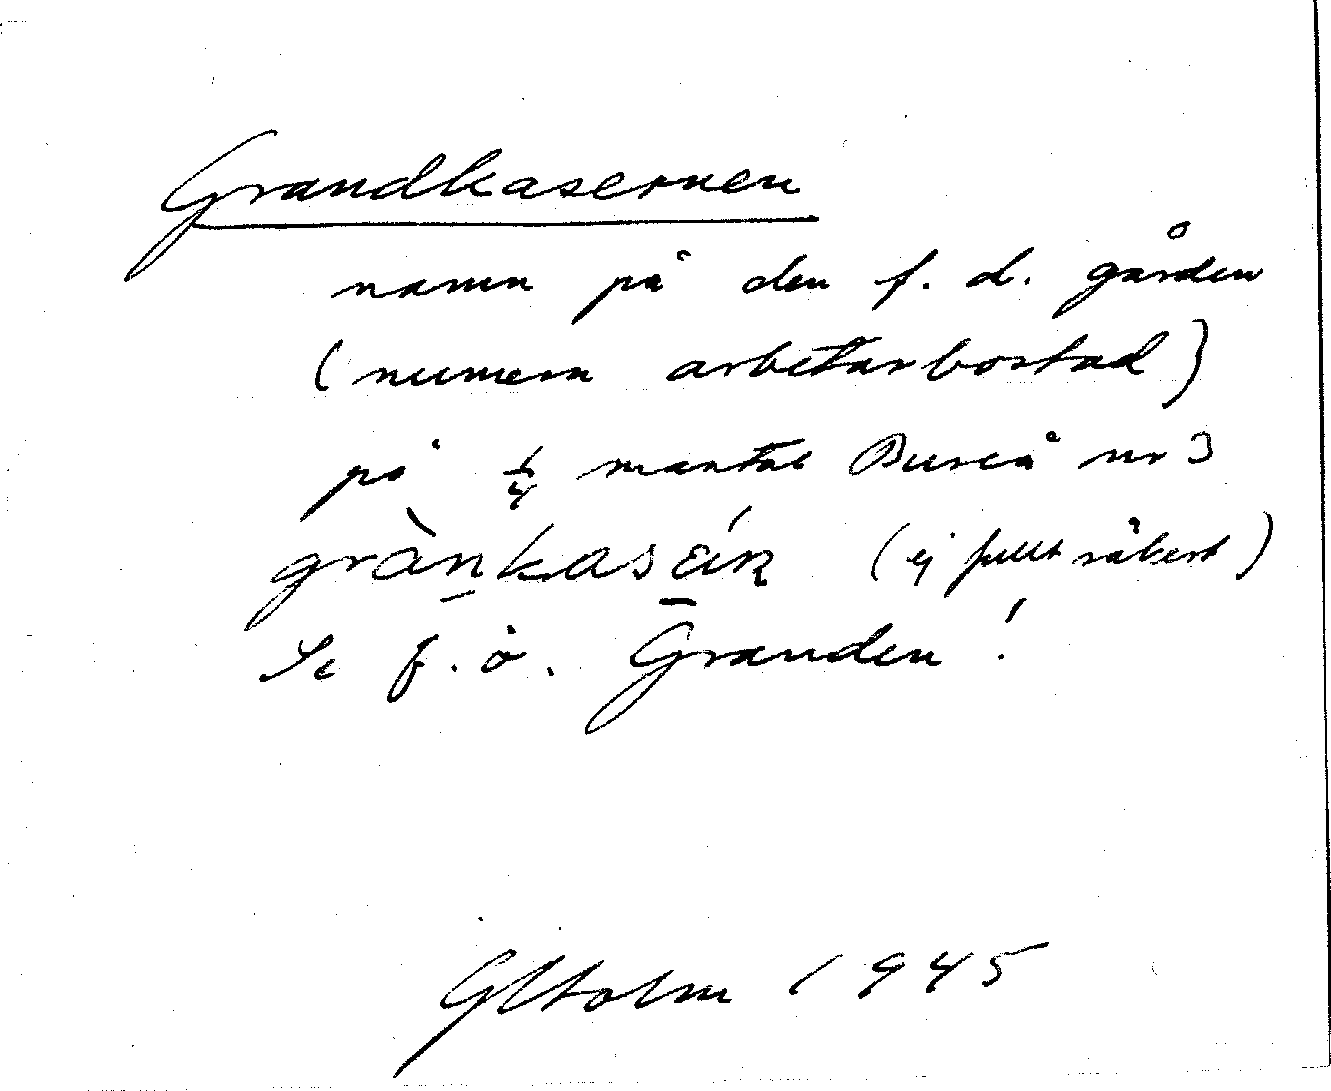 Grandkasernen
namn på den f. d. gården
(numera arbetarbostad)
på 1/4 mantal Bureå nr 3
grànkasǽrn (ej fullt säkert)
Se f. ö. Granden!
GHolm 1945